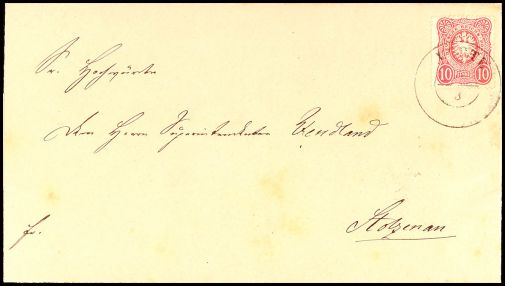 10 10
Sr. Hochwürden
Dem Herrn Superintendenten Wendland
fr.
Stolzenau
8